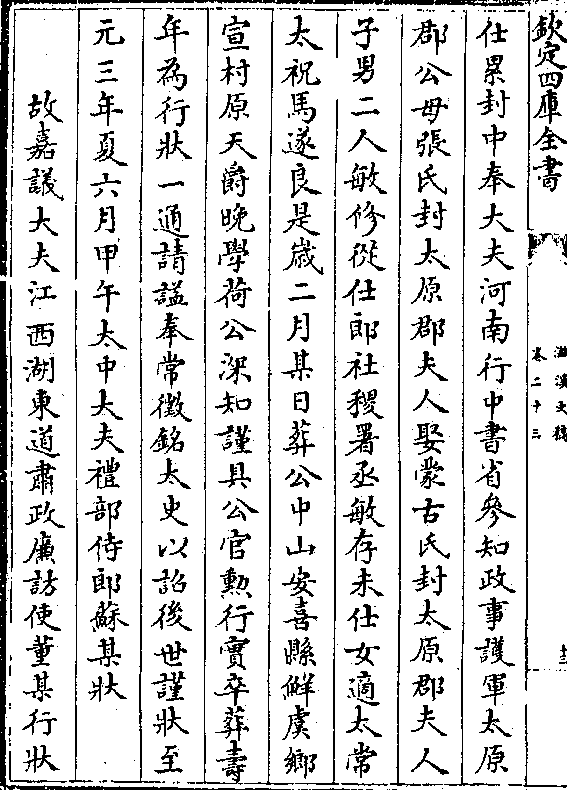 欽定四庫全書
滋溪文稿
卷二十三
仕累封中奉大夫河南行中書省參知政事護軍太原
郡公母張氏封太原郡夫人娶蒙古氏封太原郡夫人
子男二人敏修從仕郎社稷署丞敏存未仕女適太常
太祝馬遂良是歲二月某日葬公中山安喜縣鮮虞鄉
宣村原天爵晚學荷公深知謹具公官勲行實卒葬壽
年為行狀一通請諡奉常徵銘太史以詔後世謹狀至
元三年夏六月甲午太中大夫禮部侍郎蘇某狀
故嘉議大夫江西湖東道肅政廉訪使董某行狀